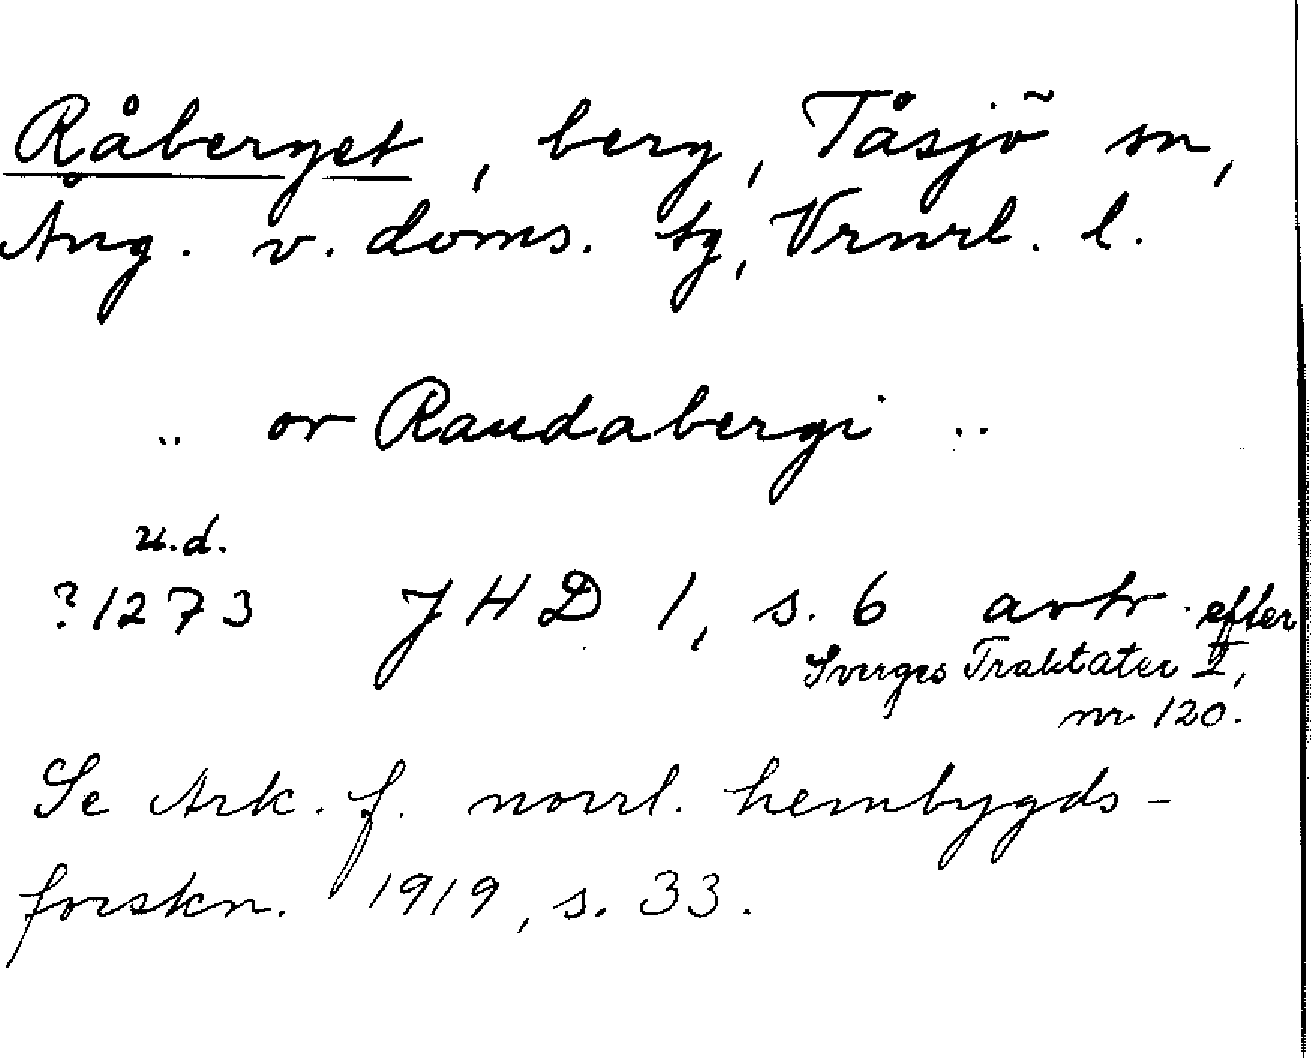 Råberget, berg, Tåsjö sn,
Ång. v. doms. tg, Vrnrl. l.
.. or Raudabergi ..
u.d.
?1273 JHD 1, s. 6 avtr. efter
Sverges Traktater I,
nr 120.
Se Ark. f. norrl. hembygds-
forskn. 1919, s. 33.